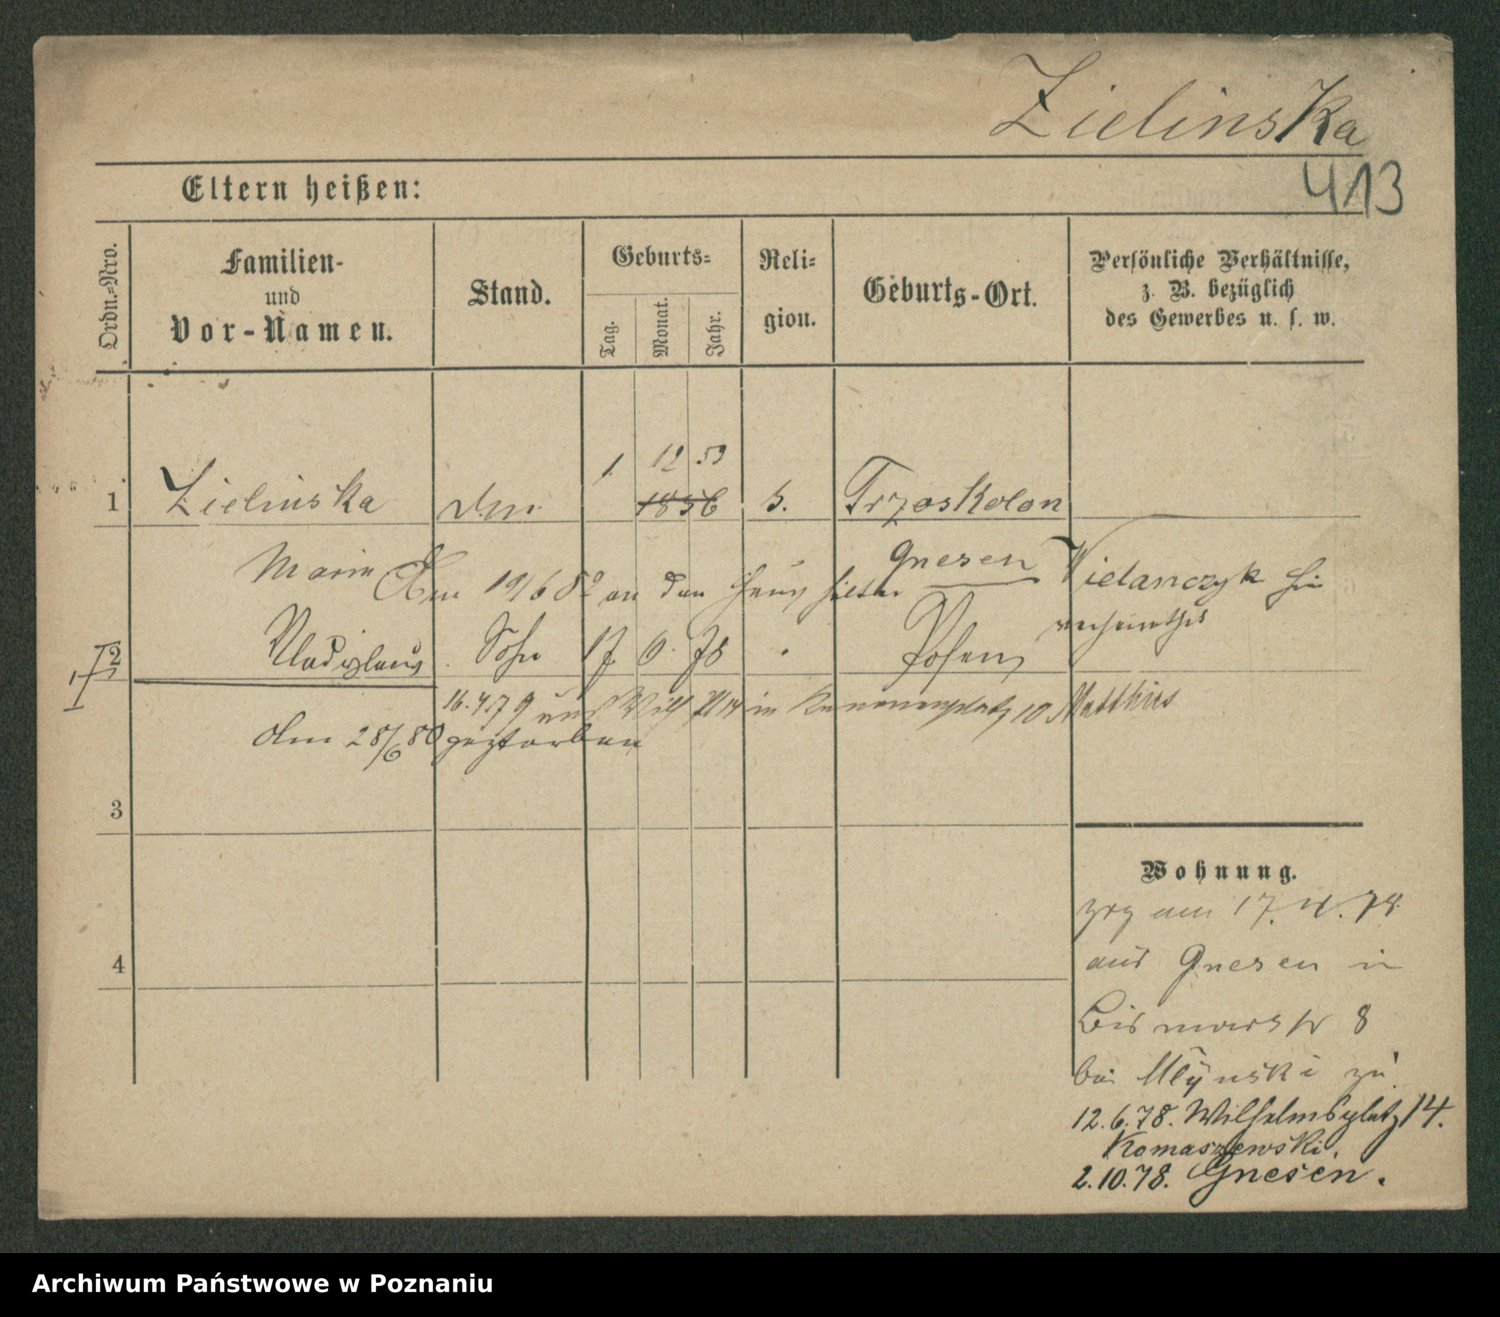 Zielinska
413
Eltern heißen:
Ordn.-Nro.
Familien-
und
Vor-Namen.
Stand.
Geburts-
Tag.
Monat.
Jahr.
Reli-
gion.
Geburts-Ort.
Persönliche Verhältnisse,
z. B. bezüglich
des Gewerbes u. s. w.
1. 12 53
1 Zielinska 1856 Trzoskolon
Gnesen
Maria
19/6 82 an den
verheirathet
2 Wladislaus Sohn 17 6. 78 Posen
16.4.79 aus in Kanonenplatz 10 Matthias
am 28/6 80 gestorben
3
4
Wohnung.
zrg am 17.4.78
aus Gnesen in
Bismarkstr 8
bei Mlynski zu
12.6.78. Wilhelmsplatz 14.
Komaszewski.
2.10.78. Gnesen.
Archiwum Państwowe w Poznaniu